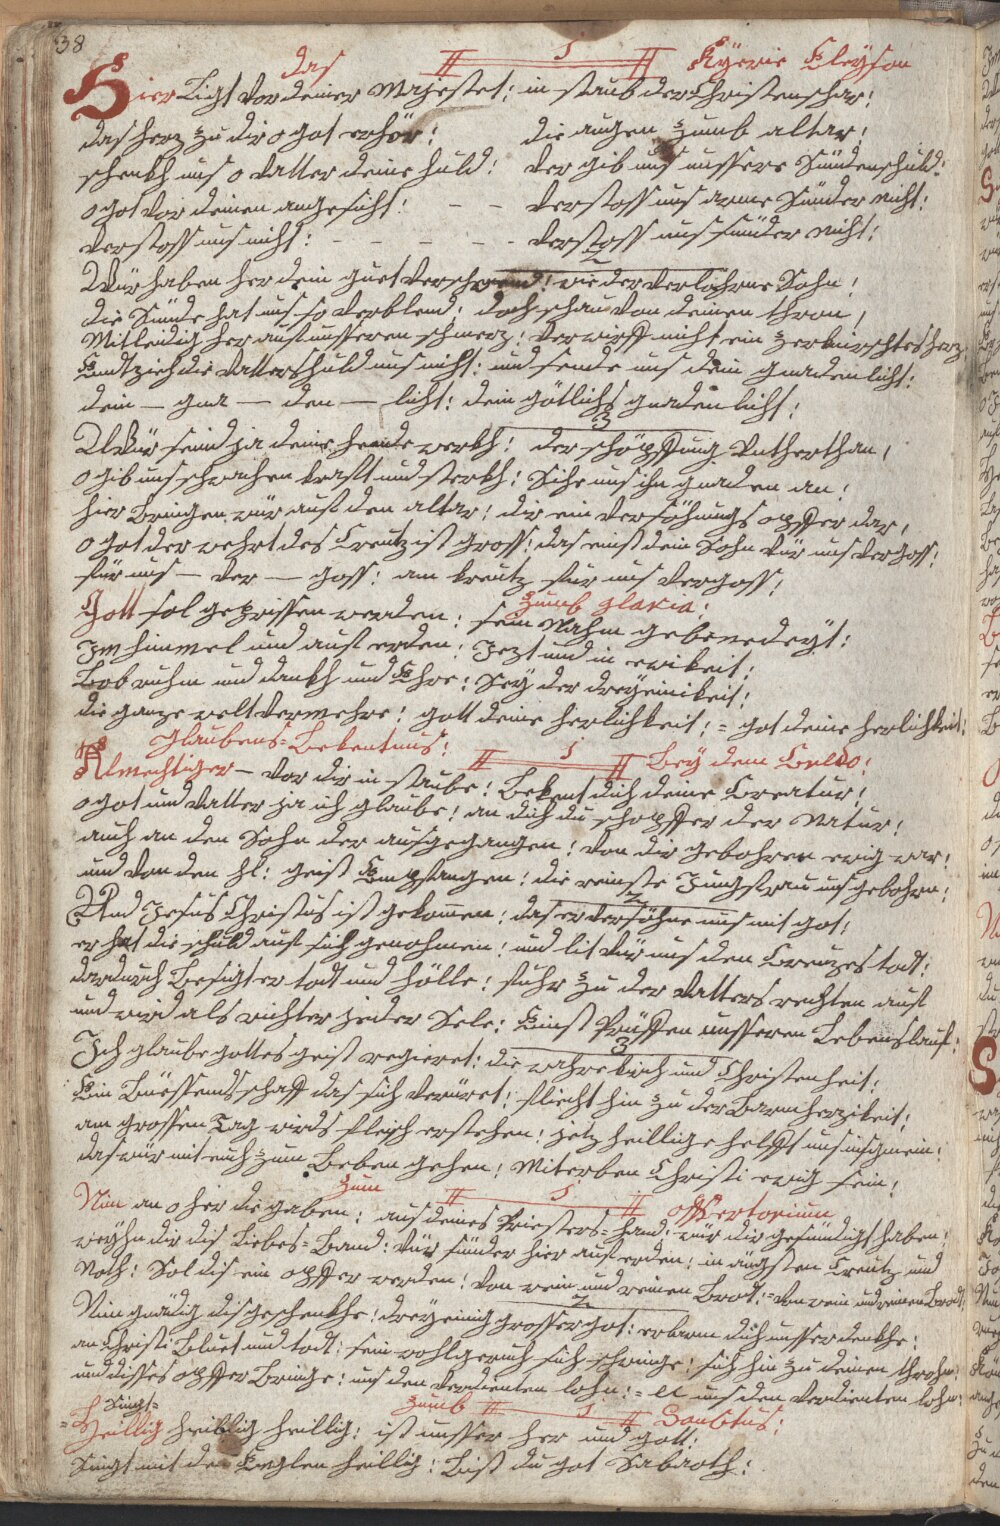 38
das 1 Kÿerie Eleÿson
Hier Ligt vor deiner Majestet: in staub der Christenschar:
das herz zu dir o got erhör: die augen zumb altar:
schenkh uns o Vatter deine huld: Ver gib uns unssere Sündenschuld:
o got vor deinen angesicht: – – verstoss uns arme Sünder nicht:
verstoss uns nicht: – – – – – verstoss uns sünder nicht:
2
Wür haben her dein guet verschwend: wie der verlohrne Sohn:
die Sünde hat uns so verblend: doch schau von deinen thron,
Mitleidig her auf unsseren schmerz: verwirff nicht ein zerknirschtes herz,
Endtzieh die Vatters huld uns nicht: und sende uns dein gnadenlicht:
dein – gna – den – licht: dein götlichs gnadenlicht:
3
Wür seind ja deine hende werkh: der schöpffung Untherthan,
o gib uns schwachen kraft und sterkh: Sihe uns ihn gnaden an:
hier Bringen wür auf den altar: dir ein versöhnungs opffer dar,
o got der wehrt des Creutz ist gross: das einst dein Sohn Vür uns vergoss:
für uns – ver – goss: am kreutz für uns vergoss:
zumb gloria:
Gott sol geprissen werden: sein Nahm gebenedeyt:
Im himmel und auf erden: Jezt und in ewikeit:
Lob ruhm und dankh und Ehre: Seÿ der dreÿeinikeit:
die ganze welt vermehre: gott deine herlichkeit: = got deine herlichkeit:
glaubens=Bekentnus: 1 Beÿ dem Credo:
Almechtiger – vor dir in staube: Bekent dich deine Creatur:
o got und Vatter ja ich glaube: an dich du schöpffer der Natur:
auch an den Sohn der ausgegangen: von dir gebohren ewig war:
und von den hl: geist Empfangen: die reinste Jungfrau uns gebohrn:
2
Und Jesus Christus ist gekomen: das er versöhne uns mit got:
er hat die schuld auf sich genohmen: und lit Vür uns den Creuzes todt:
dardurch Besigt er todt und hölle: fuhr zu der Vatters rechten auf
und wird als richter jeder Sele: Einst Prüffen unsseren Lebenslauf:
3
Ich glaube gottes geist regieret: die wahre kirch und Christenheit:
Ein Büessends schaff das sich verüret: flieht hin zu der Barmherzikeit:
am grossen Tag wirds fleisch erstehen: jetz heillige helfft uns insgmein:
das wür mit euch zum Leben gehen: Miterben Christi ewig sein:
zum 1 offertorium
Nim an o her die gaben: aus deines Priesters=hand: wür dir gesündigt haben:
weÿhn dir dis Liebes=Band: Vür sünder hier auf erden: in ängsten Creutz und
Noth: Sol dis ein opffer werden: von wein und reinen Brod: = von wein und reinen Brodt:
2
Nim gnädig dis geschenkhe: dreÿeinig grosser got: erbarm dich unsser denkhe:
an Christi Bluet und todt: sein wohlgeruch sich schwinge: sich hin zu deinen throhn:
und disses opffer Bringe: uns den verdienten lohn: = uns den verdienten lohn:
Singt= zumb 1 Sanktus:
Heillig heillig heillig: ist unsser her und gott:
Singt mit den Englen heillig: Bist du got Sabaoth: